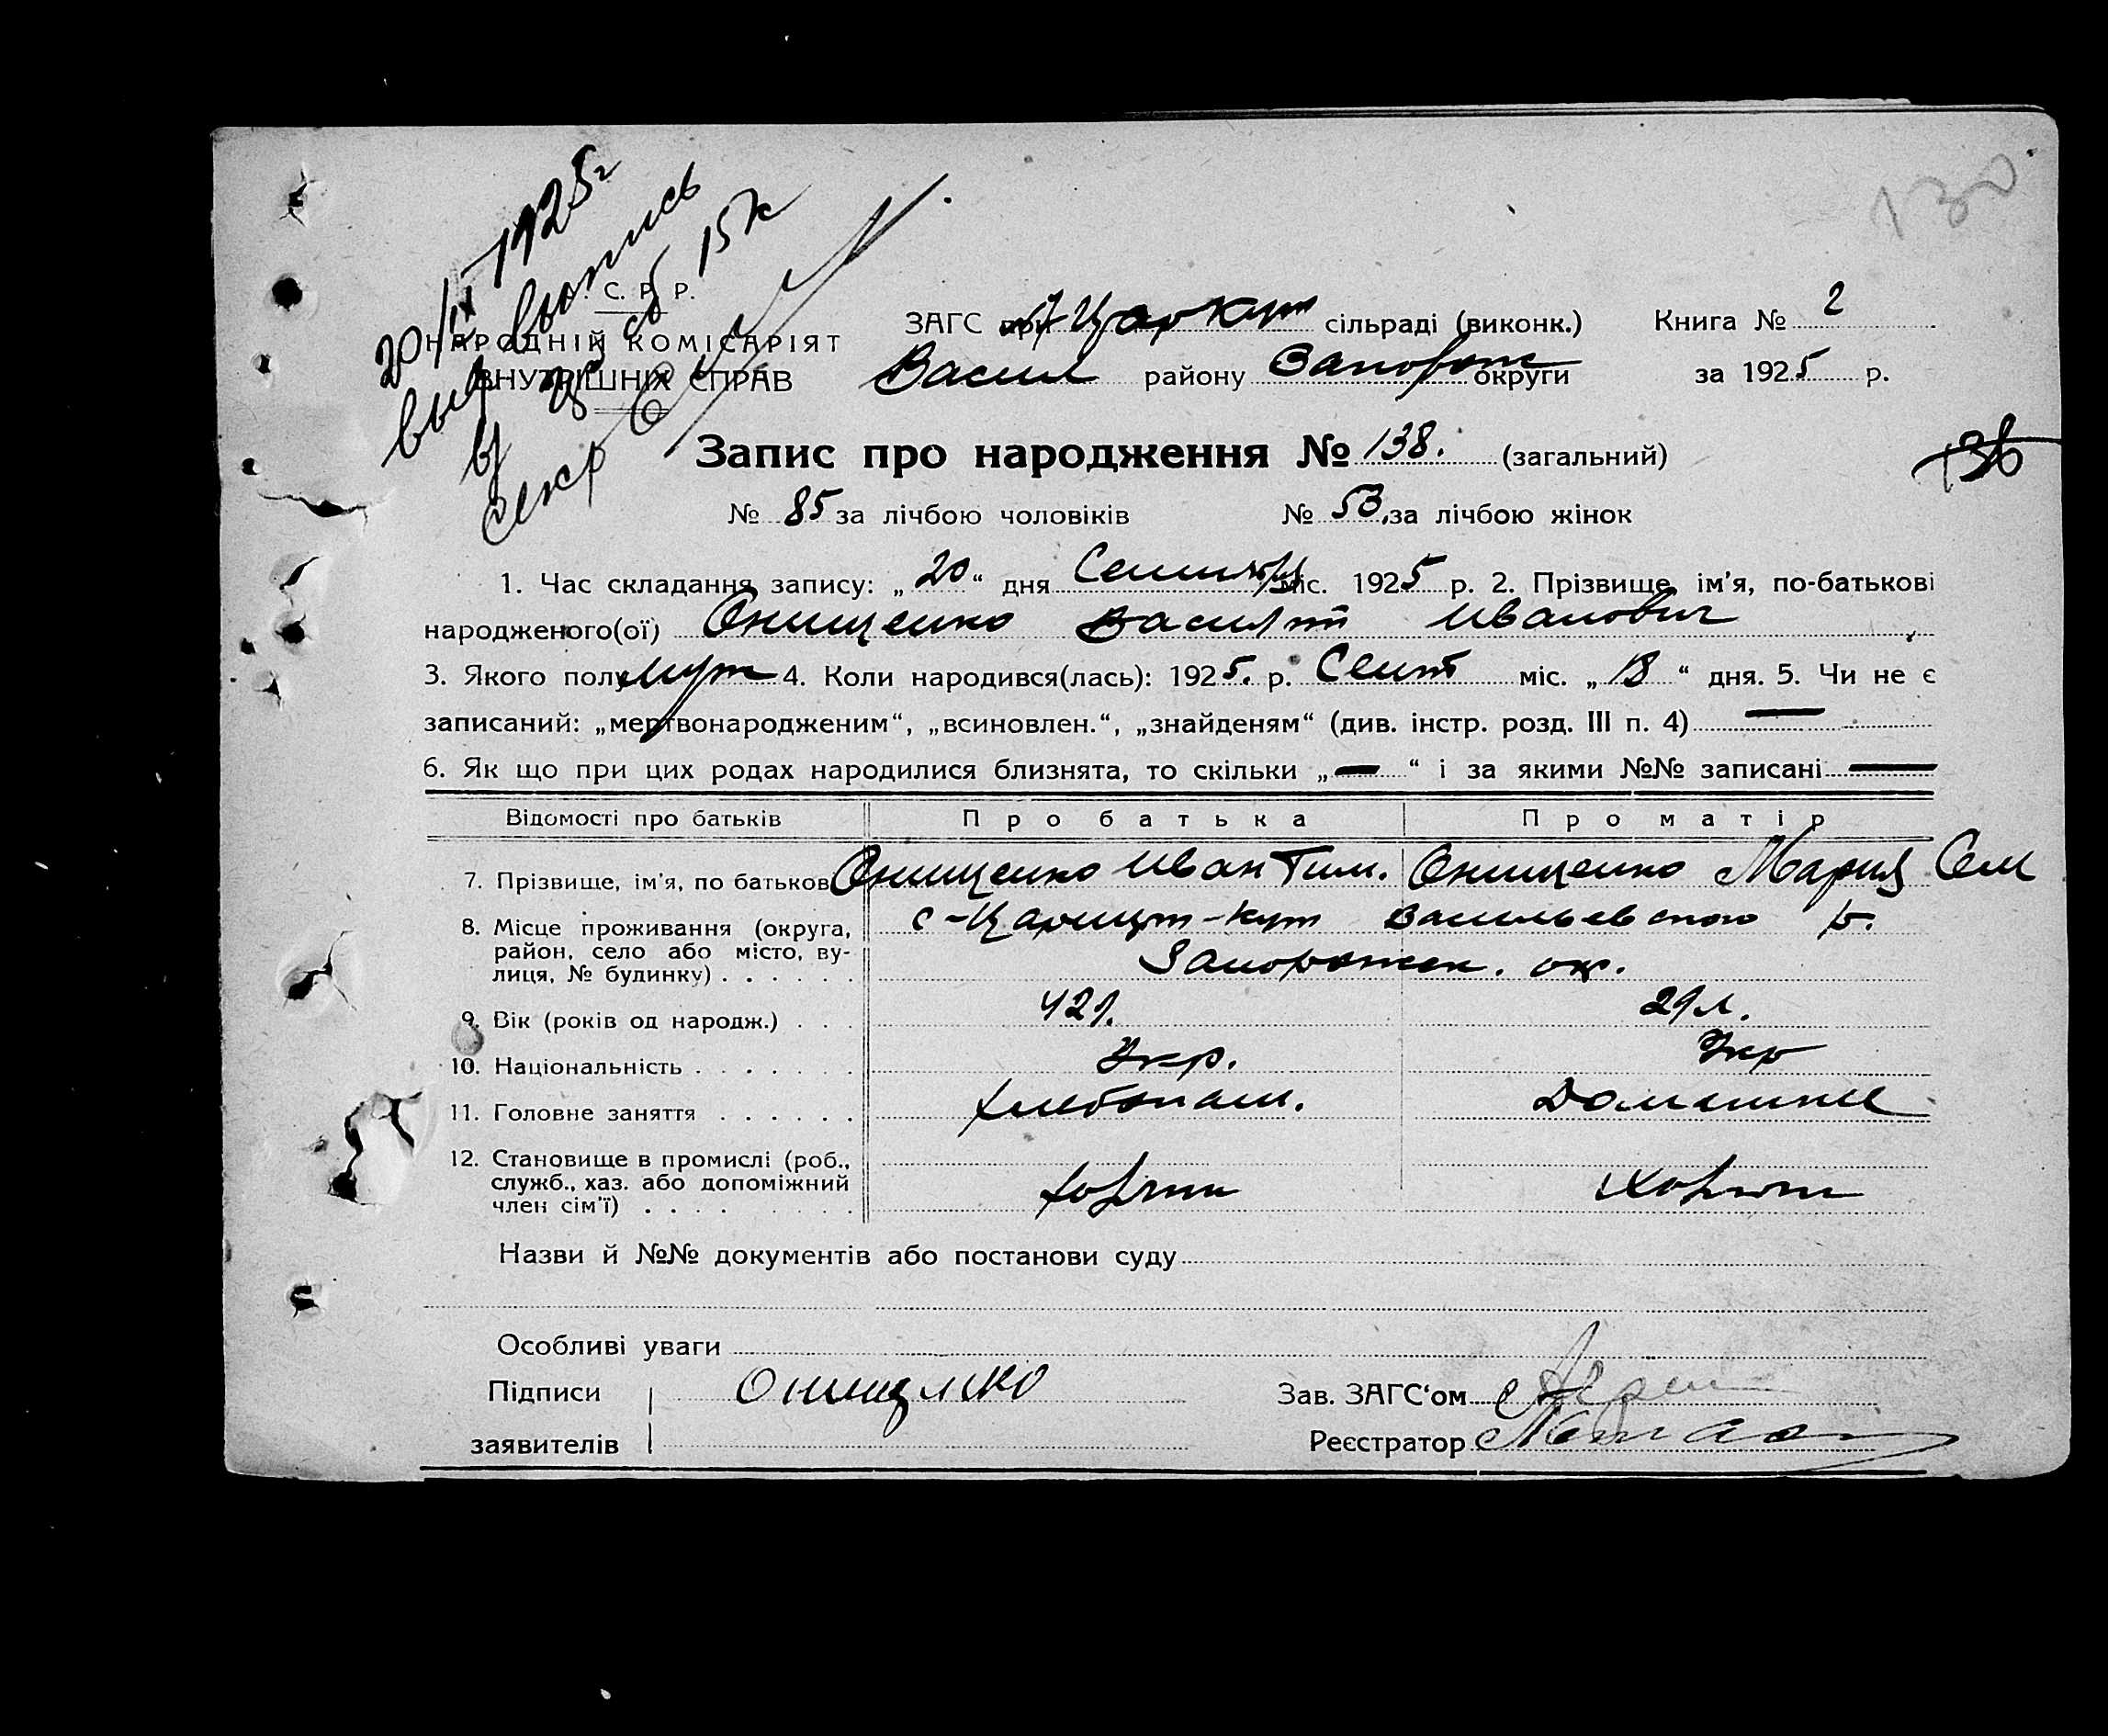 130
20/IX 1925г
выд выпись
15к
секр
С. Р. Р.
НАРОДНІЙ КОМІСАРІЯТ
ВНУТРІШНІХ СПРАВ
ЗАГС при Цар Кут сільраді (виконк.) Книга № 2
Васил району Запорож округи за 1925 р.
Запис про народження № 138. (загальний)
136
№ 85 за лічбою чоловіків № 53, за лічбою жінок
1. Час складання запису: „20“ дня Сентября міс. 1925 р. 2. Прізвище, ім'я, по-батькові
народженого(ої) Онищенко Василий Иванович
3. Якого полу муж 4. Коли народився(лась): 1925. р. Сент міс. „18“ дня. 5. Чи не є
записаний: „мертвонародженим“, „всиновлен.“, „знайденям“ (див. інстр. розд. III п. 4) —
6. Як що при цих родах народилися близнята, то скільки „—“ і за якими №№ записані —
Відомості про батьків Про батька Про матір
7. Прізвище, ім'я, по батьков Онищенко Иван Тим. Онищенко Мария Сем
8. Місце проживання (округа, с-Царицын-Кут Васильевского р.
район, село або місто, ву-
лиця, № будинку) . . . . . . Запорожск. ок.
9. Вік (років од народж.) . . . 42л. 29л.
10. Національність . . . . . . . Укр. Укр
11. Головне заняття . . . . . Хлебопаш. Домашние
12. Становище в промислі (роб.,
служб., хаз. або допоміжний
член сім'ї) . . . . . . . . .
Назви й №№ документів або постанови суду
Особливі уваги
Підписи Онищенко Зав. ЗАГС'ом
заявителів Реєстратор